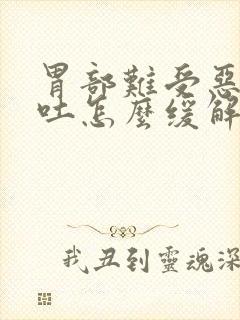 胃部難受惡
吐怎麼緩解
我丑到靈魂深